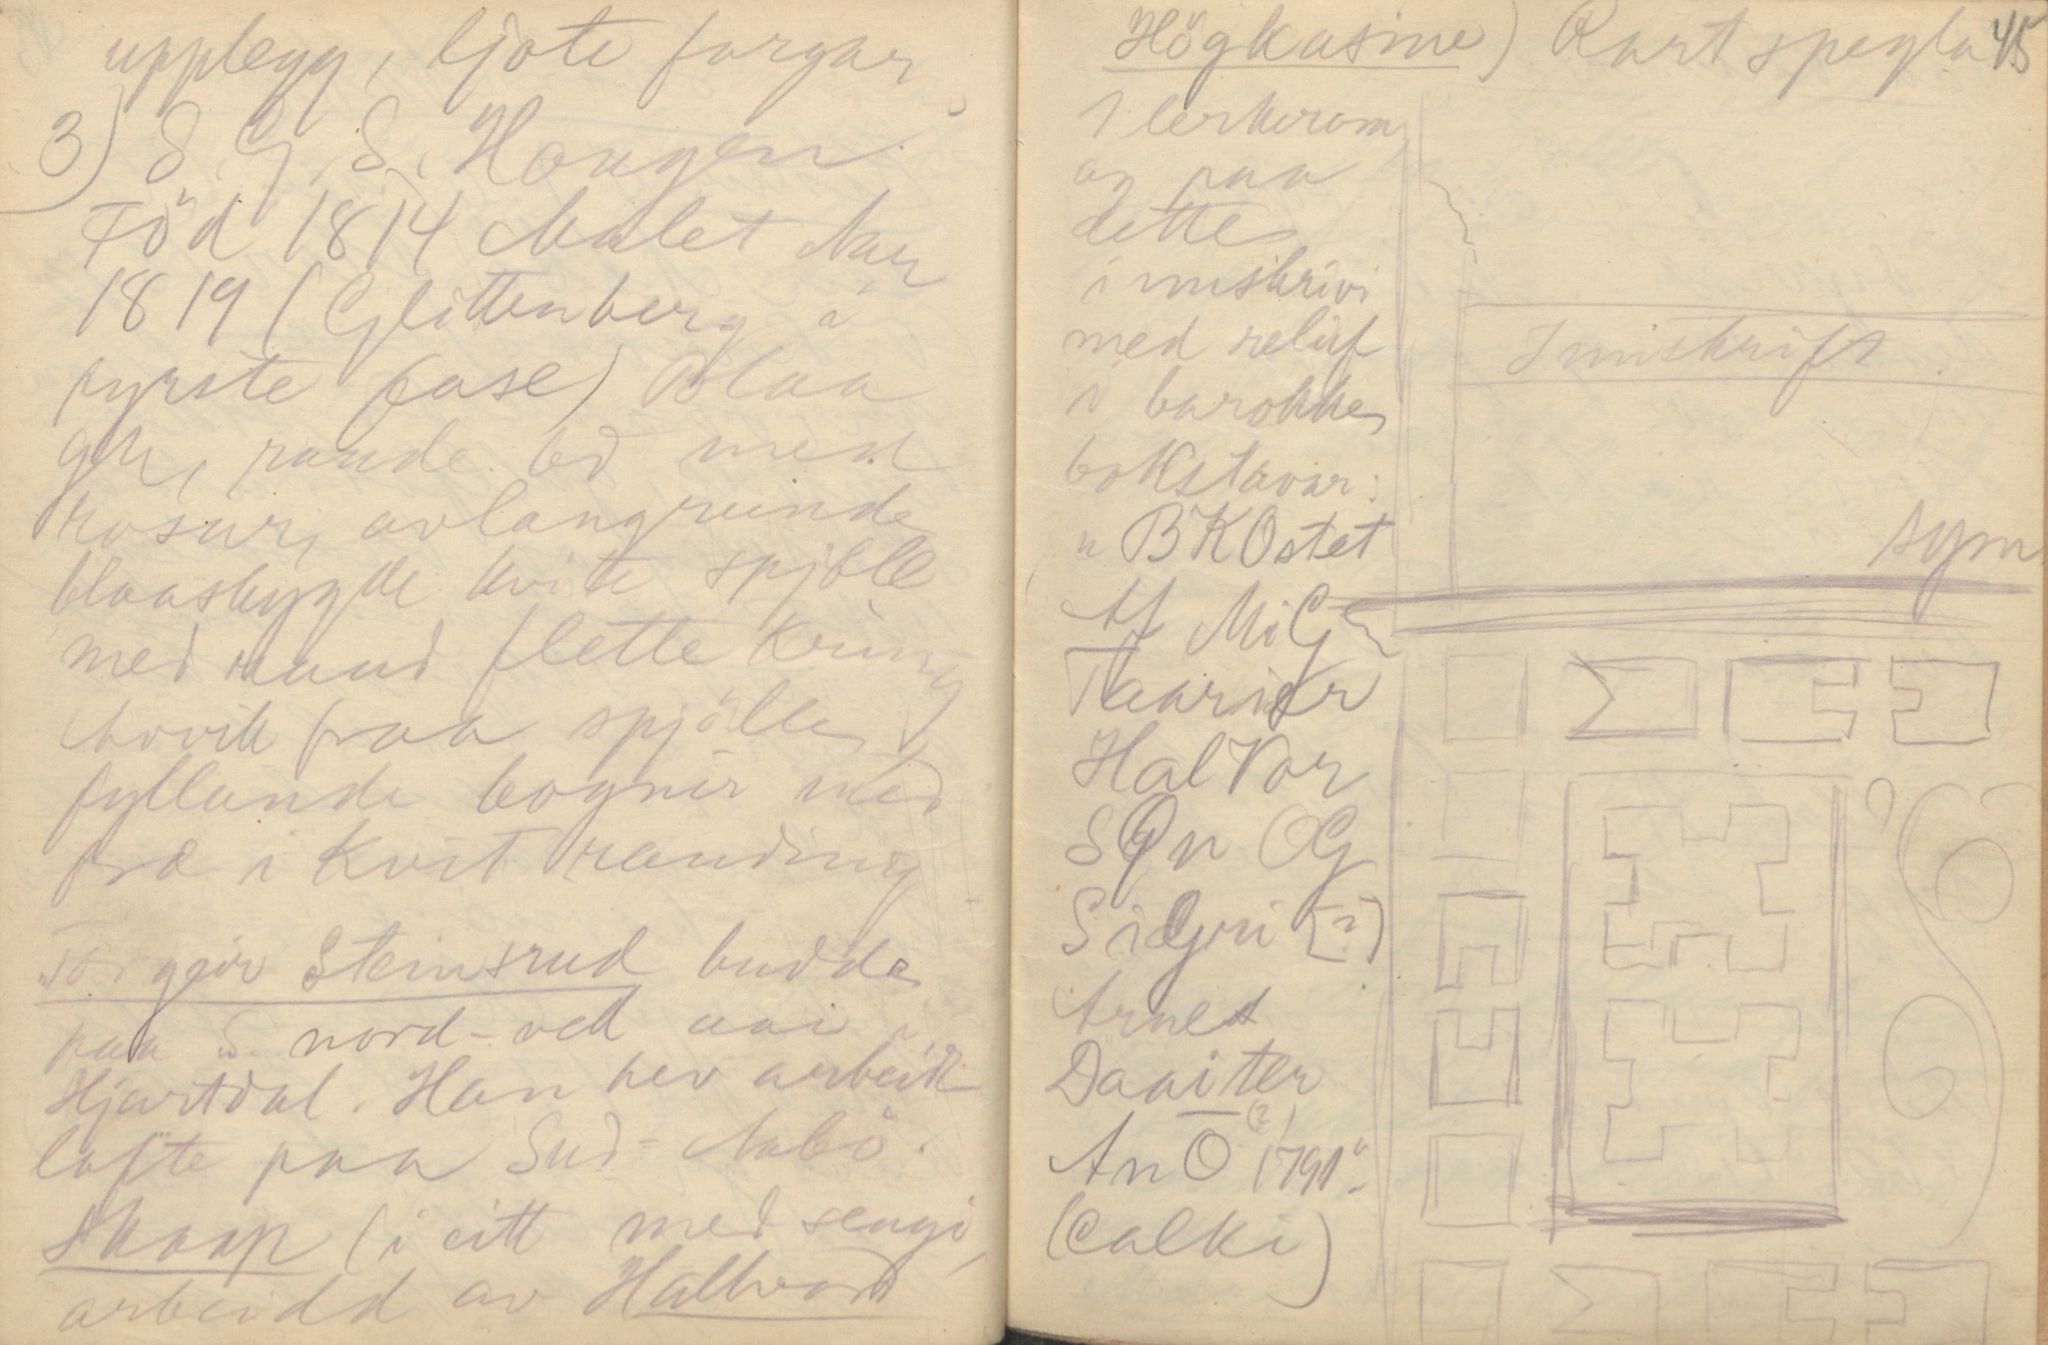 upplegg, ljote fargar.
3) S G. S. Haugen.
Föd 1814 Malet Aar
1819 (Glittenberg i
fyrste fase) Blaa
gr, raude bd med
rosur, avlangrunde
blaaskygde kvite spjöll
med raud flette kring
Arvik paa spjölle,
fyllande bogner med
frd i kvit randing
Torgeir Steinsrud budde
paa nord-vett uai i
Hjartdal. Han hev arbeidt
lofte paa Sud=Aabö.
Skaap (i eitt med sengi,
arbeidd av Hallvard
Högkasine) Rart spegla 45
I lerkerom
og paa
dette
innskrivi
med relief
i barokke
bokstavar:
" BKOstet
Af MiG
Taarier
HalVor
SOn OG
SiGri [?]
Arnes
Daaiter (?)
AnO 1791"
(Calki)
Innskrift
Sym